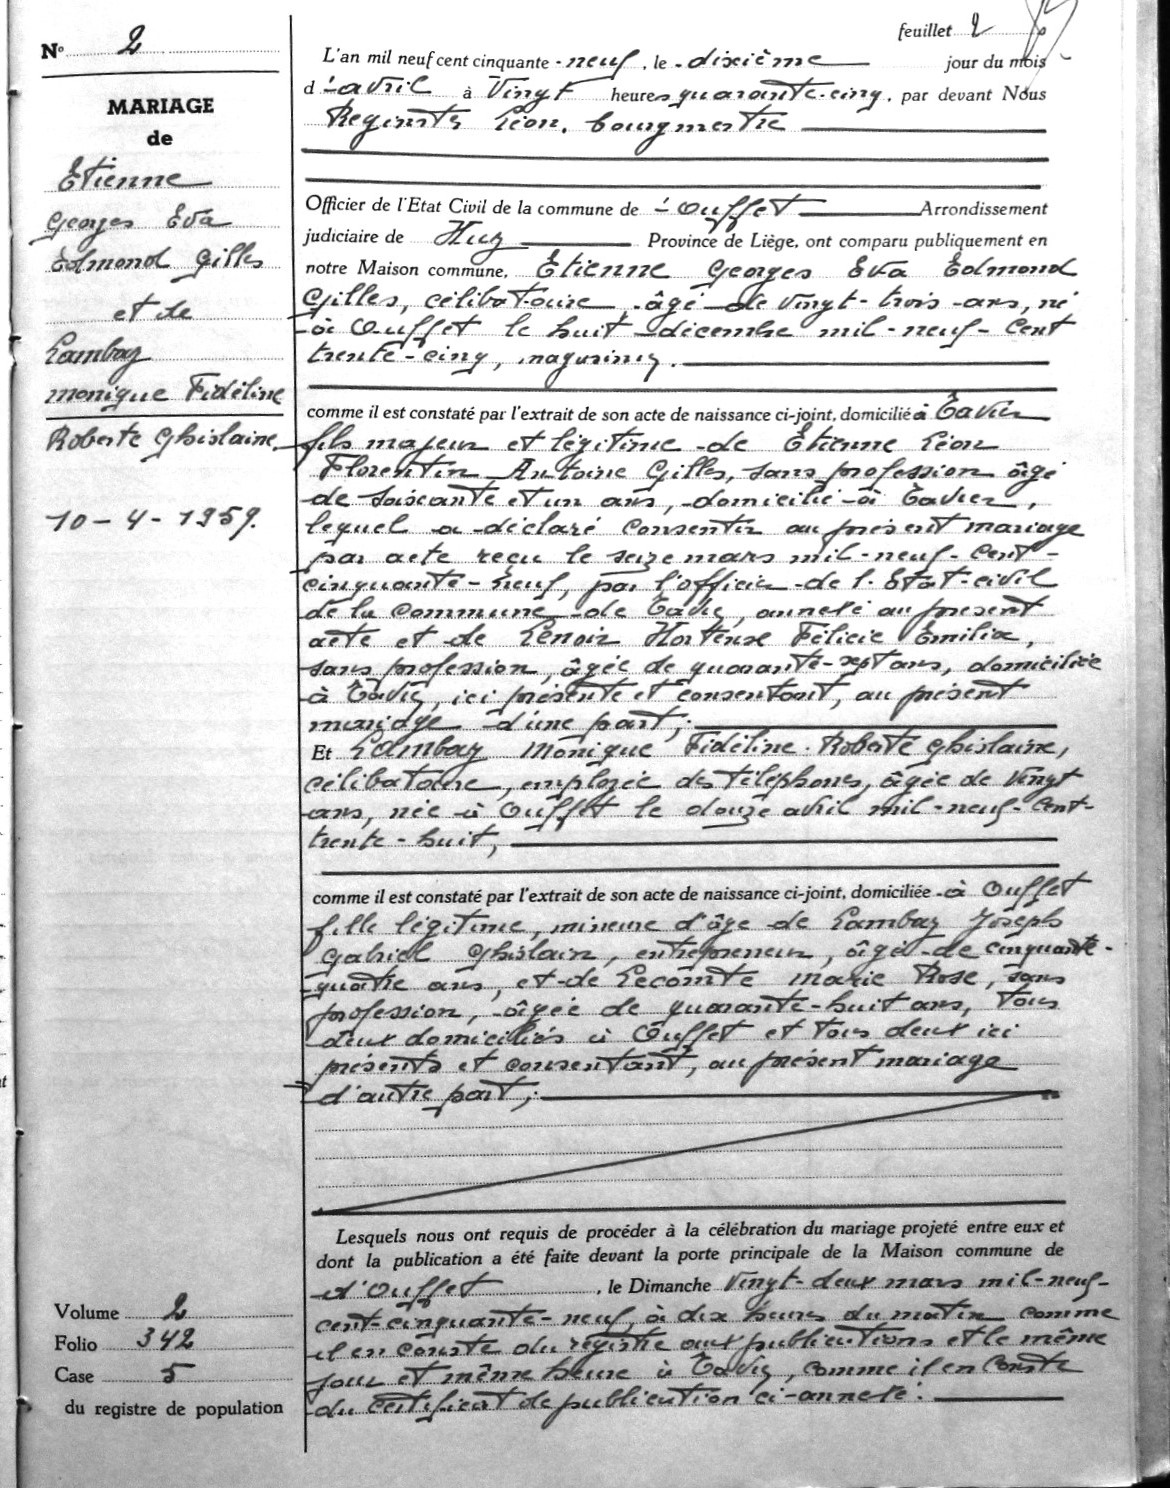 N° 2
MARIAGE
de
Etienne
Georges Eva
Edmond Gilles
et de
Lambay
monique Fidéline
Roberte Ghislaine.
10-4-1959.
Volume 2
Folio 342
Case 5
du registre de population
feuillet 2
L'an mil neuf cent cinquante-neuf, le dixième jour du mois
d'avril à Vingt heures quarante-cinq, par devant Nous
Léon, bourgmestre
Officier de l'Etat Civil de la commune de Ouffet Arrondissement
judiciaire de Huy Province de Liège, ont comparu publiquement en
notre Maison commune, Etienne Georges Eva Edmond
Gilles, célibataire, âgé de vingt-trois ans, né
à Ouffet le huit décembre mil-neuf-cent
trente-cinq, magasinier.
comme il est constaté par l'extrait de son acte de naissance ci-joint, domicilié à Tavier
fils majeur et légitime de Etienne Léon
Florentin Antoine Gilles, sans profession âgé
de soixante et un ans, domicilié à Tavier,
lequel a déclaré consentir au présent mariage
par acte reçu le seize mars mil-neuf-cent-
cinquante-neuf, par l'officier de l'Etat-civil
de la Commune de Tavier, annexé au présent
acte et de Lenoir Hortense Félicie Emilia,
sans profession, âgée de quarante-sept ans, domiciliée
à Tavier, ici présente et consentant, au présent
mariage d'une part;
Et Lambay Monique Fidéline Roberte Ghislaine,
célibataire, employée des téléphones, âgée de Vingt
ans, née à Ouffet le douze avril mil-neuf-cent-
trente-huit,
comme il est constaté par l'extrait de son acte de naissance ci-joint, domiciliée à Ouffet
fille légitime, mineure d'âge de Lambay Joseph
Gabriel Ghislain, entrepreneur, âgé de cinquante-
quatre ans, et de Lecomte Marie Rose, sans
profession, âgée de quarante-huit ans, Tous
deux domiciliés à Ouffet et tous deux ici
présents et consentant, au présent mariage
d'autre part;
Lesquels nous ont requis de procéder à la célébration du mariage projeté entre eux et
dont la publication a été faite devant la porte principale de la Maison commune de
d'Ouffet, le Dimanche Vingt-deux mars mil-neuf-
cent-cinquante-neuf, à dix heures du matin comme
il en conste du registre aux publications et le même
jour et même heure à Tavier, comme il en conste
du certificat de publication ci-annexé.